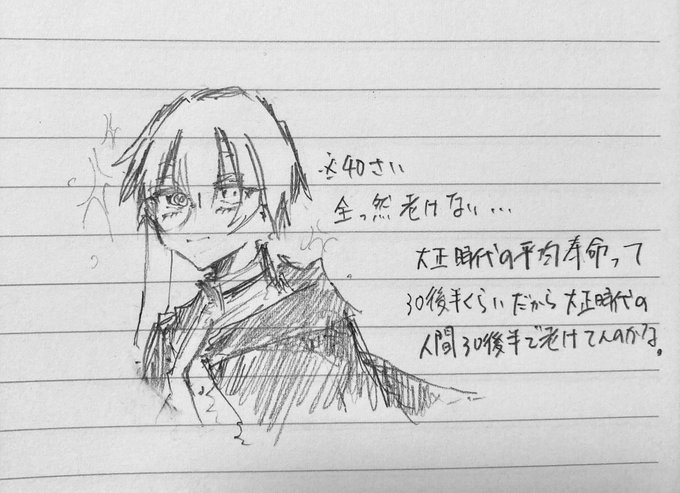 ※40さい
全っ然老けない…
大正時代の平均寿命って
30後半くらいだから大正時代の
人間30後半で老けてんのかな。